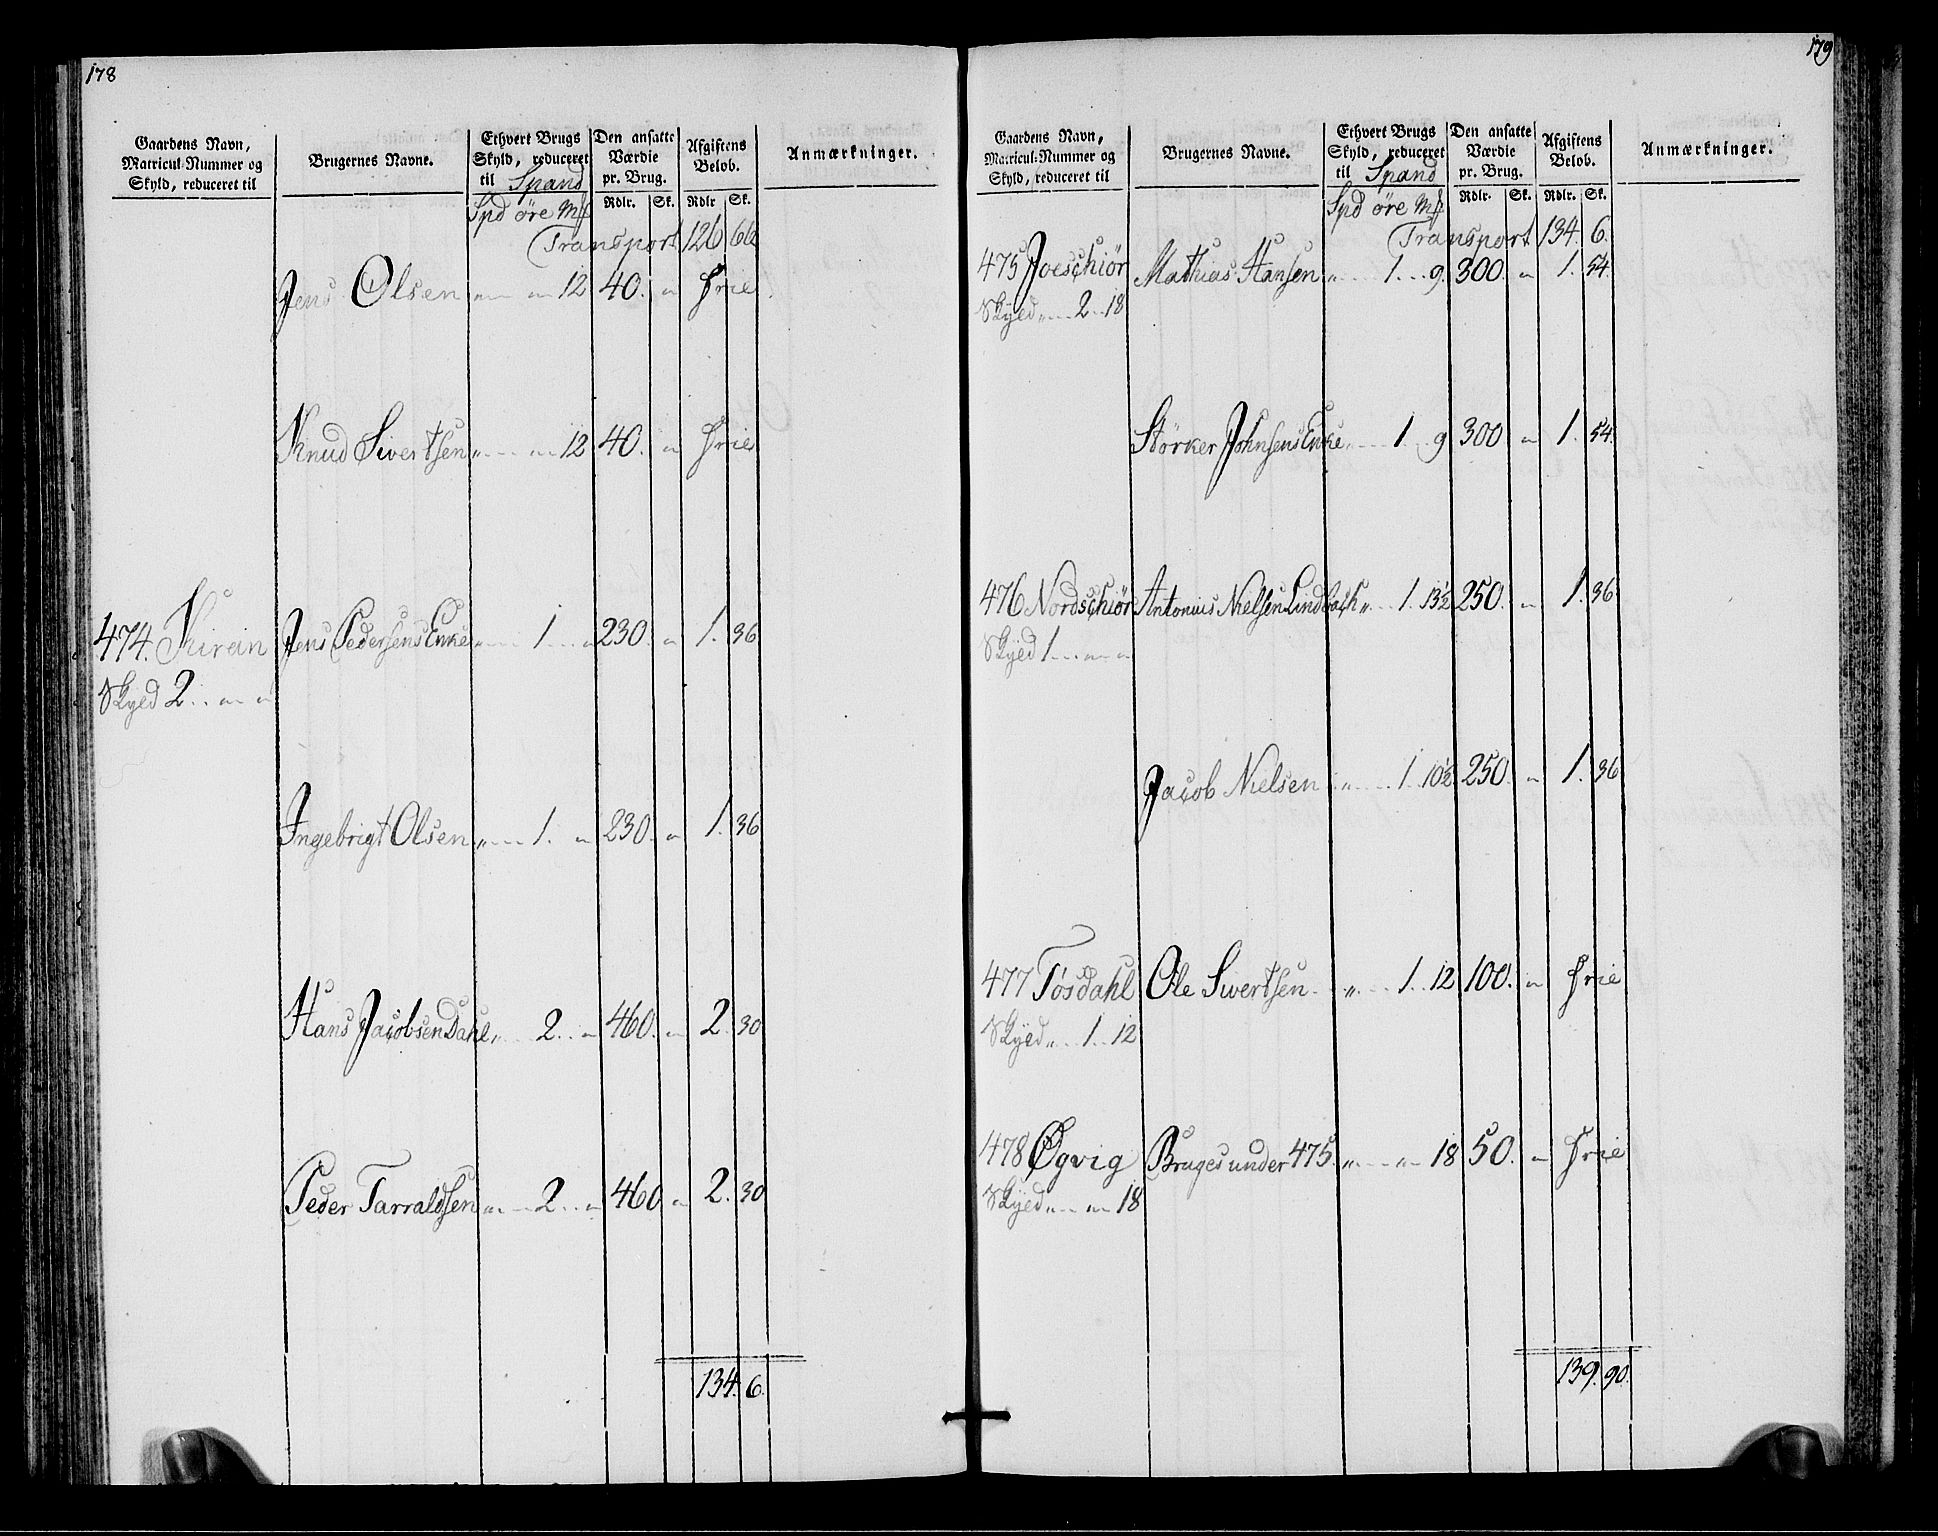 178
Gaardens Navn, Matricul-Nummer og Skyld, reduceret til | Brugernes Navne. | Ethvert Brugs Skyld, reduceret til Spand | Den ansatte Værdie pr. Brug. | Afgiftens Beløb. | Anmærkninger.
Spd øre Mß | Rdlr. | Sk. | Rdlr | Sk.
Transport 126 66
Jens Olsen „ „ 12 40. „ Frie
Knud Sivertsen „ „ 12 40. „ Frie
474. Kiran Jens Pedersens Enke „ 1 „ 230. „ 1. 36
Skyld 2 „ „
Ingebrigt Olsen „ 1. „ 230. „ 1. 36
Hans Jacobsen Dahl „ 2 „ 460. „ 2. 30
Peder Tarraldsen „ 2 „ 460 „ 2. 30
134. 6.
179
Gaardens Navn, Matricul-Nummer og Skyld, reduceret til | Brugernes Navne. | Ethvert Brugs Skyld, reduceret til Spand | Den ansatte Værdie pr. Brug. | Afgiftens Beløb. | Anmærkninger.
Spd øre Mß | Rdlr. | Sk. | Rdlr. | Sk.
Transport 134. 6.
475 Joeschiør Mathias Hansen „ 1 9. 300. „ 1. 54.
Skyld „ 2 18
Størker Johnsens Enke „ 1 9 300 „ 1. 54.
476 Nordschiør Antonius Nielsen Lindbach „ 1. 13½ 250. „ 1. 36.
Skyld 1 „ „
Jacob Nielsen „ 1. 10½ 250. „ 1. 36
477 Tøsdahl Ole Sivertsen „ 1 12 100. „ Frie
Skyld „ 1 12
478 Øgvig Bruges under 475. „ „ 18 50. „ Frie
Skyld „ „ 18
139. 90.